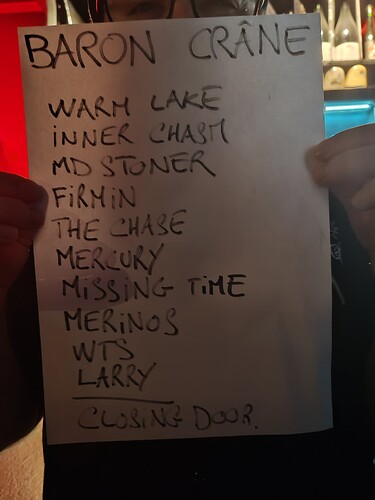 BARON CRÂNE
WARM LAKE
iNNER CHASM
MD STONER
FiRMiN
THE CHASE
MERCURY
MiSSiNG TiME
MERiNOS
WTS
LARRY
CLOSiNG DOOR.